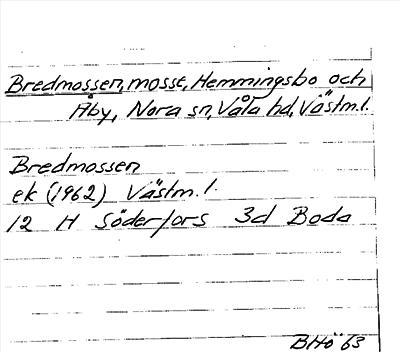 Bredmossen, mosse, Hemmingsbo och
Åby, Nora sn, Våla hd, Västm. l.
Bredmossen
ek (1962) Västm. l.
12 H Söderfors 3d Boda
BHö 63